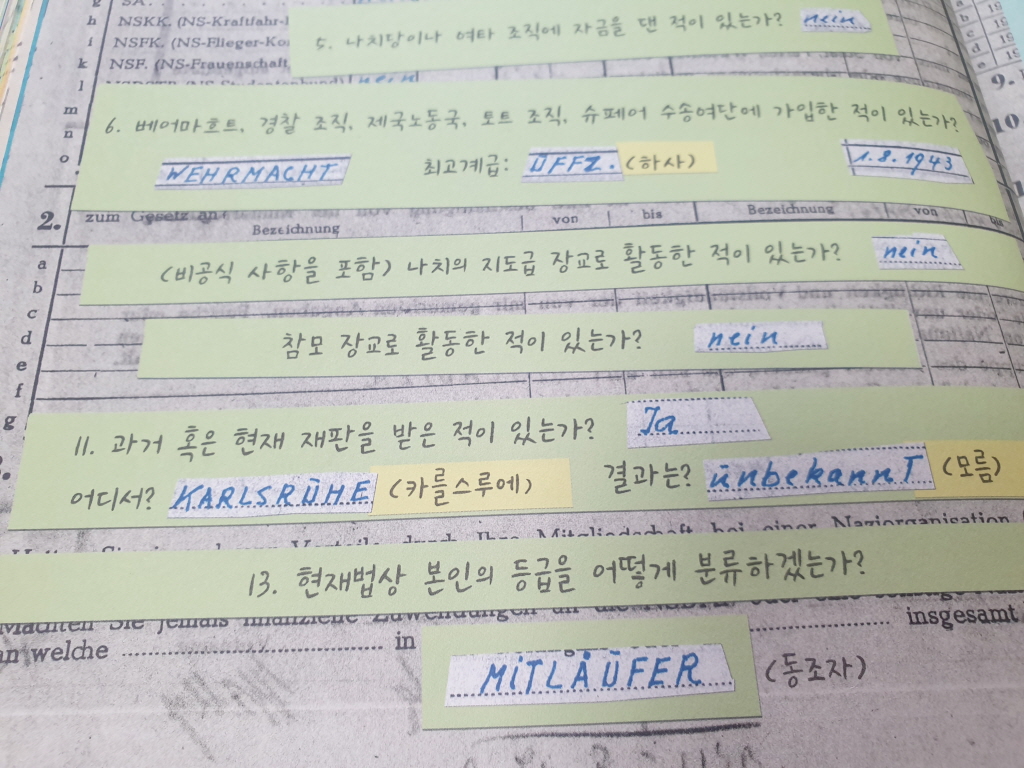 h NSKK. (NS-Kraftfahr-
i NSFK. (NS-Flieger-Ko
k NSF. (NS-Frauenschaft,
l
m
n
o
5. 나치당이나 여타 조직에 자금을 댄 적이 있는가? nein
6. 베어마흐트, 경찰 조직, 제국노동국, 토트 조직, 슈페어 수송여단에 가입한 적이 있는가?
WEHRMACHT 최고계급: UFFZ. (하사) 1.8.1943
9.
10.
2. zum Gesetz an
Bezeichnung von bis Bezeichnung von
a
(비공식 사항을 포함) 나치의 지도급 장교로 활동한 적이 있는가? nein
b
c
d
참모 장교로 활동한 적이 있는가? nein
e
f
g
11. 과거 혹은 현재 재판을 받은 적이 있는가? Ja
어디서? KARLSRÜHE (카를스루에) 결과는? ünbekannT (모름)
durch Ihre Mitgliedschaft bei einer Naziorganisation
13. 현재법상 본인의 등급을 어떻게 분류하겠는가?
Machten Sie jemals finanzielle Zuwendungen an die
an welche in insgesamt
MITLÄUFER (동조자)